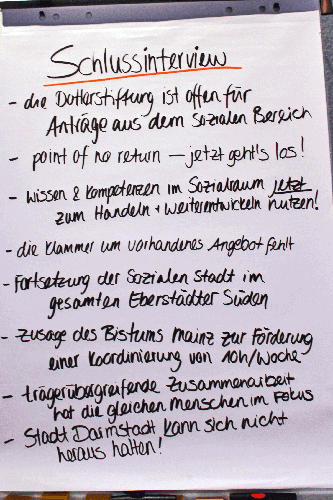 Schlussinterview
- die Dotterstiftung ist offen für
Anträge aus dem sozialen Bereich
- point of no return – jetzt geht's los!
- Wissen & Kompetenzen im Sozialraum jetzt
zum Handeln + Weiterentwickeln nutzen!
- die Klammer um vorhandenes Angebot fehlt
- Fortsetzung der Sozialen Stadt im
gesamten Eberstädter Süden
- Zusage des Bistums Mainz zur Förderung
einer Koordinierung von 10h/Woche
- trägerübergreifende Zusammenarbeit
hat die gleichen Menschen im Fokus
- Stadt Darmstadt kann sich nicht
heraus halten!